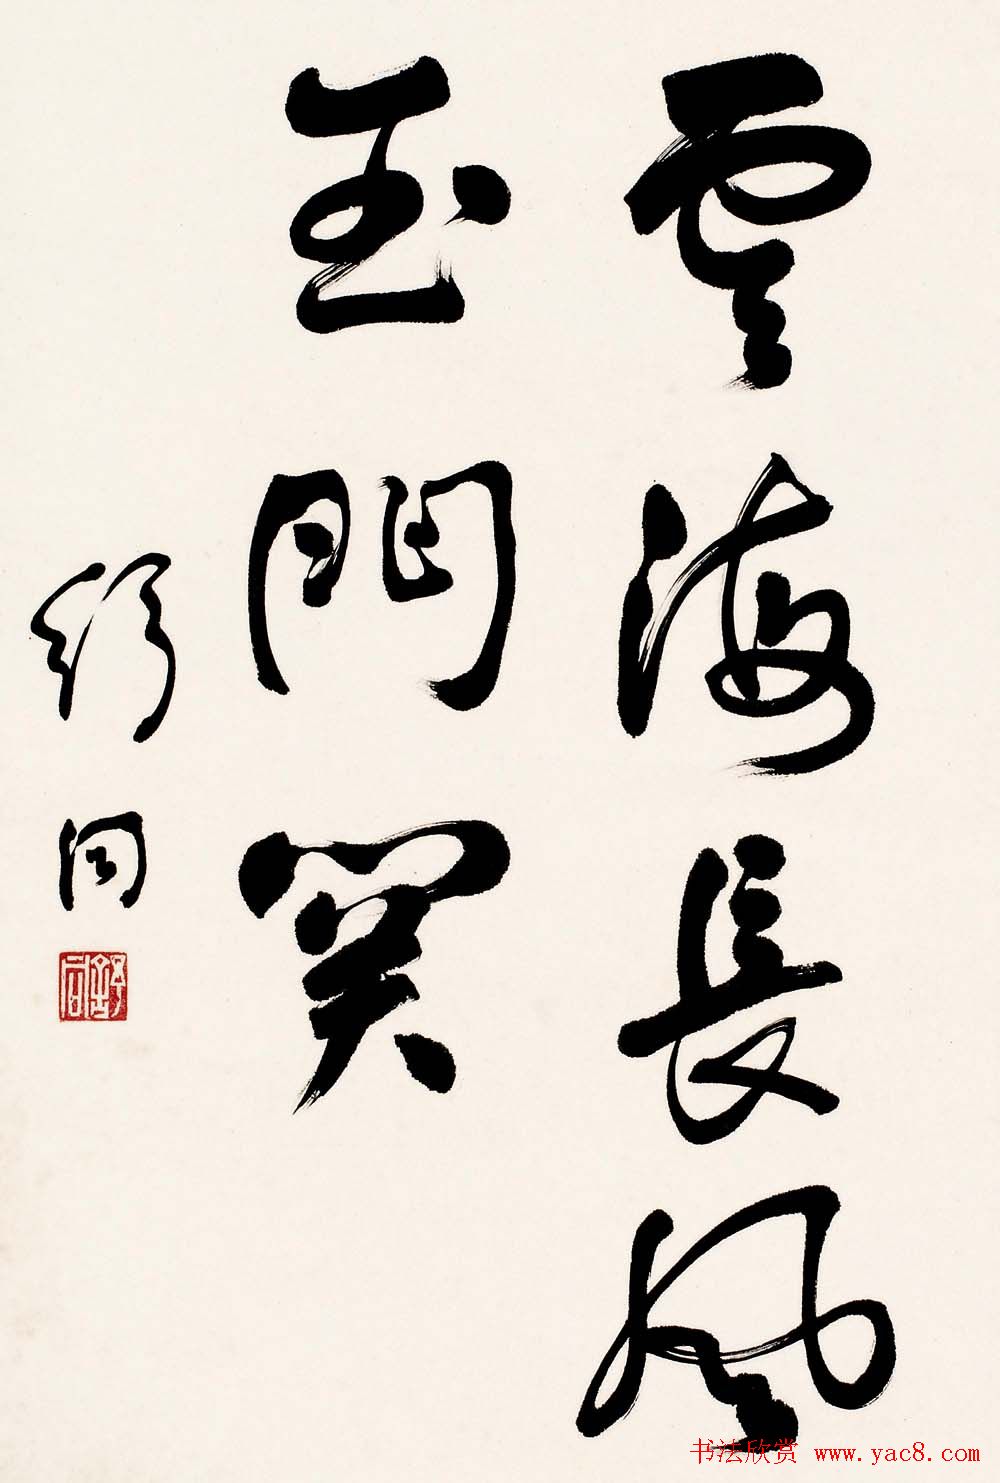 雲海長風
玉門関
舒同
舒同
书法欣赏 www.yac8.com